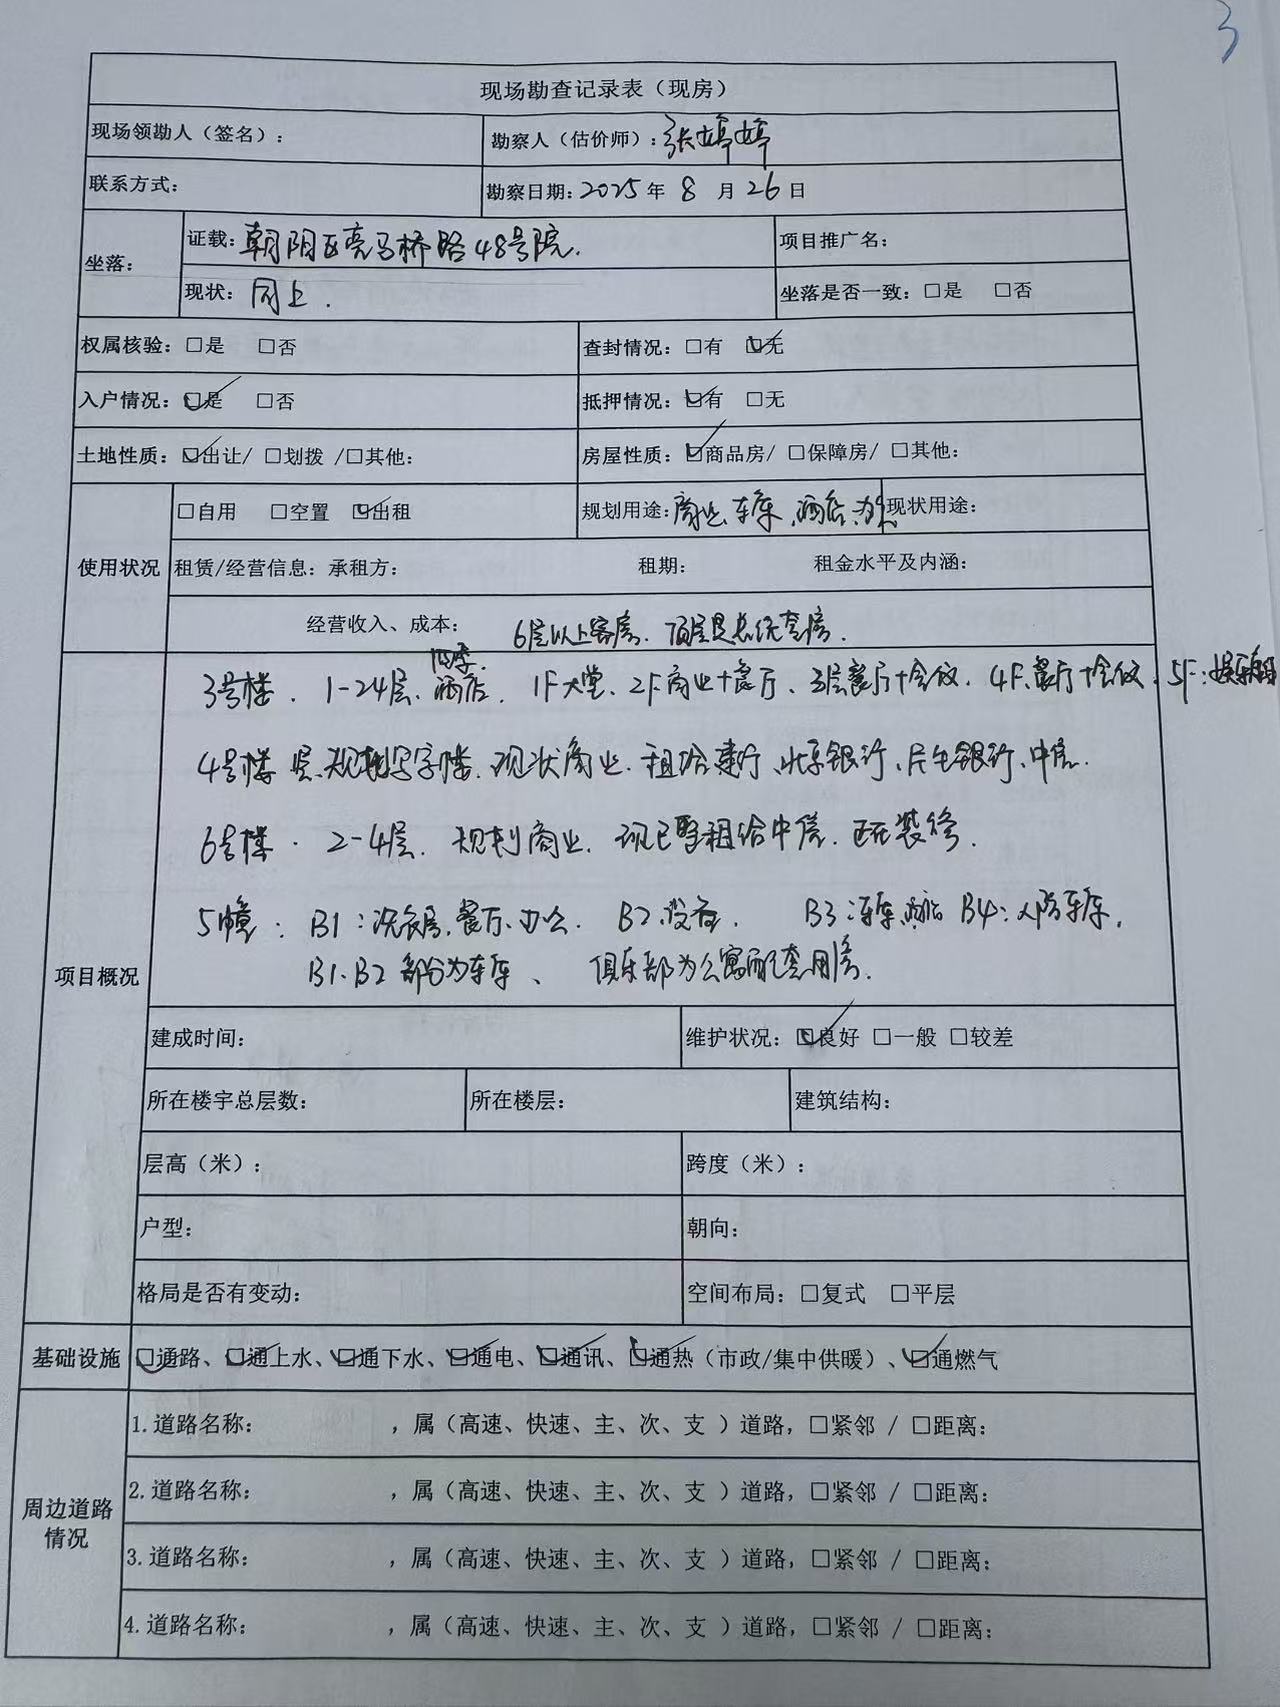 3
现场勘查记录表（现房）
现场领勘人（签名）： 勘察人（估价师）：张婷婷
联系方式： 勘察日期：2025年 8 月 26 日
坐落： 证载：朝阳区亮马桥路48号院. 项目推广名：
现状：同上. 坐落是否一致：□是 □否
权属核验：□是 □否 查封情况：□有 ☑无
入户情况：☑是 □否 抵押情况：☑有 □无
土地性质：☑出让/ □划拨 /□其他： 房屋性质：☑商品房/ □保障房/ □其他：
使用状况 □自用 □空置 ☑出租 规划用途：商业、车库、酒店、办公 现状用途：
租赁/经营信息：承租方： 租期： 租金水平及内涵：
经营收入、成本： 6层以上客房. 顶层是总统套房.
四季.
3号楼. 1-24层. 酒店. 1F大堂. 2F商业+餐厅、3层餐厅+会议. 4F、餐厅+会议. 5F:
4号楼 规划写字楼. 现状商业. 租给建行、北京银行、民生银行、中信.
6号楼. 2-4层. 规划商业. 现已整租给中信. 正在装修.
5幢： B1：洗衣房、餐厅、办公. B2、设备. B3：车库、酒店 B4：人防车库.
B1、B2部分为车库、 俱乐部为公寓配套用房.
项目概况
建成时间： 维护状况：☑良好 □一般 □较差
所在楼宇总层数： 所在楼层： 建筑结构：
层高（米）： 跨度（米）：
户型： 朝向：
格局是否有变动： 空间布局：□复式 □平层
基础设施 ☑通路、☑通上水、☑通下水、☑通电、☑通讯、☑通热（市政/集中供暖）、☑通燃气
周边道路情况 1.道路名称： ，属（高速、快速、主、次、支 ）道路，□紧邻 / □距离：
2.道路名称： ，属（高速、快速、主、次、支 ）道路，□紧邻 / □距离：
3.道路名称： ，属（高速、快速、主、次、支 ）道路，□紧邻 / □距离：
4.道路名称： ，属（高速、快速、主、次、支 ）道路，□紧邻 / □距离：